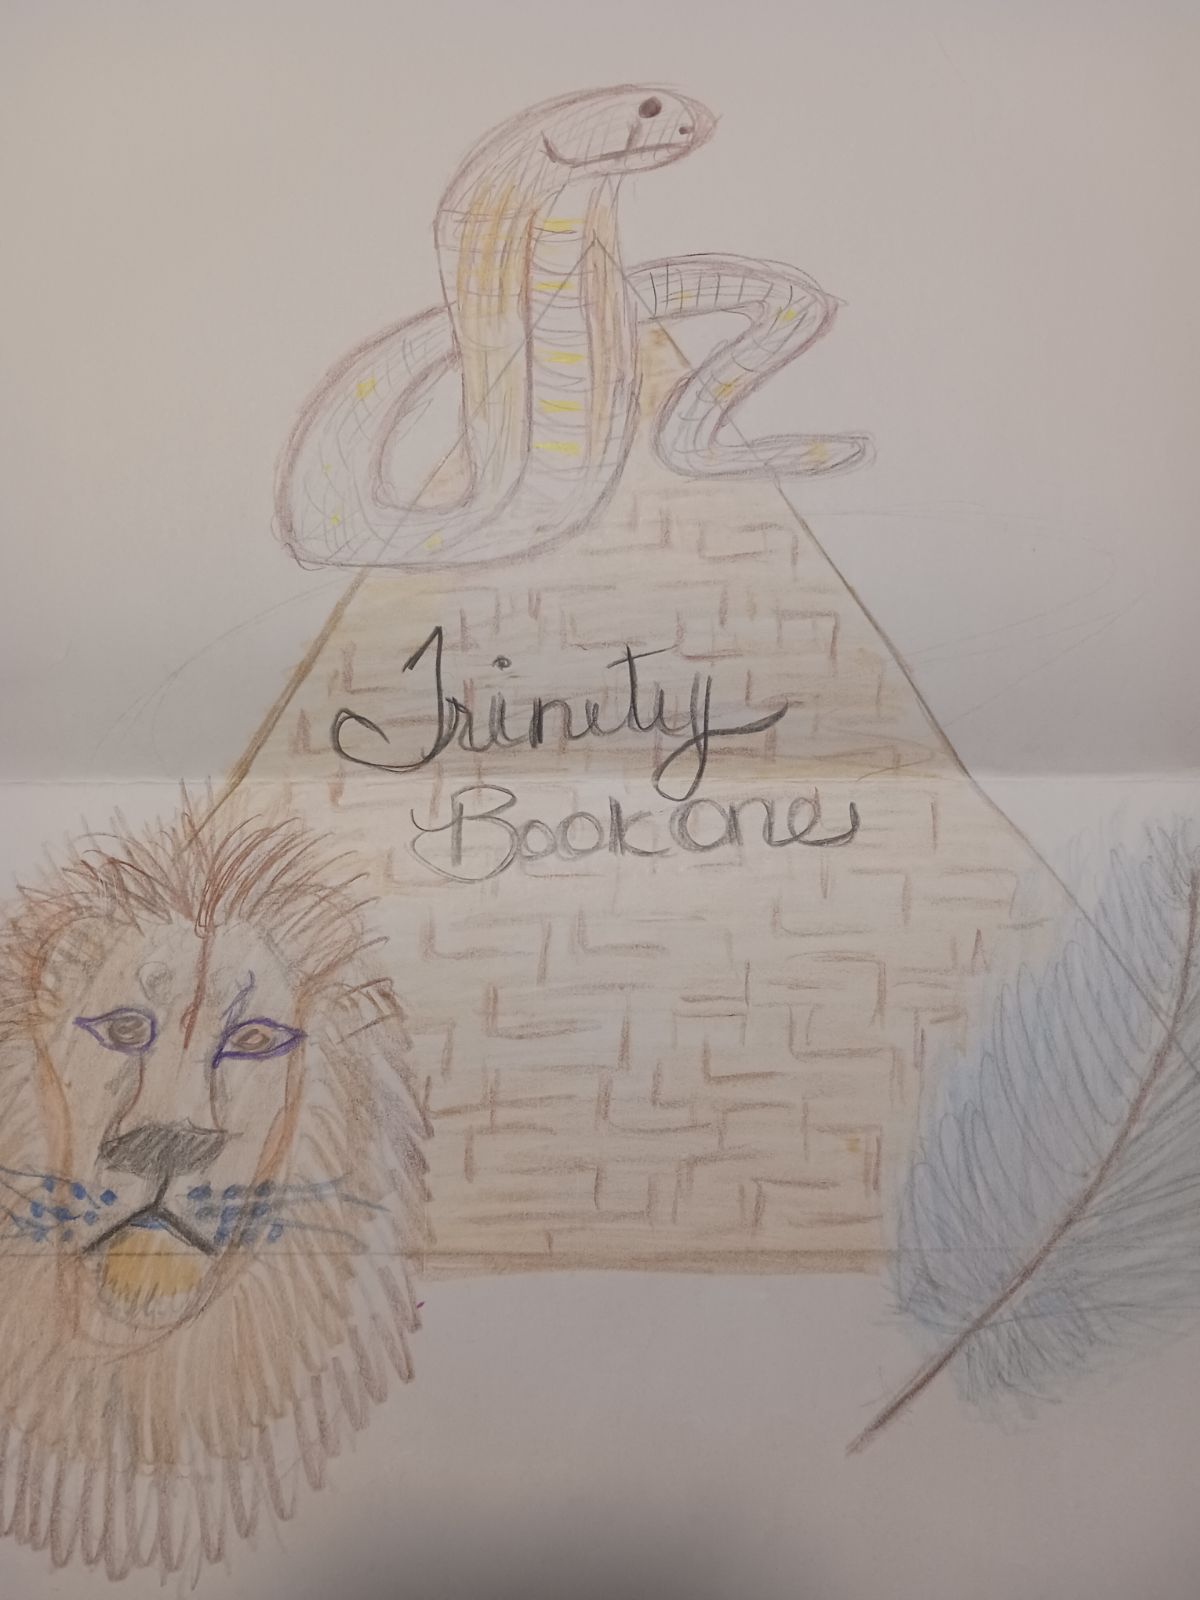 Trinity
Book one